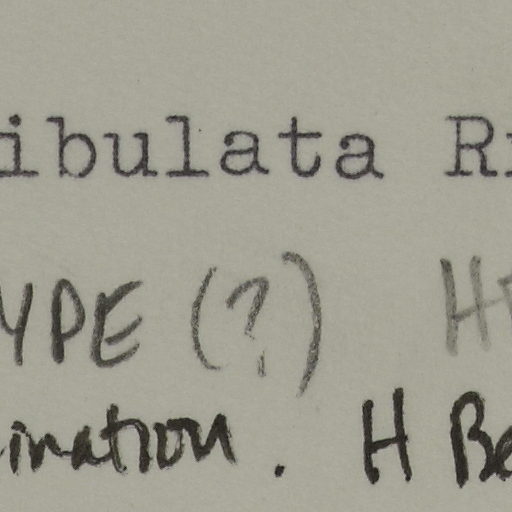 ibulata R
YPE (?) H
ination. H Be